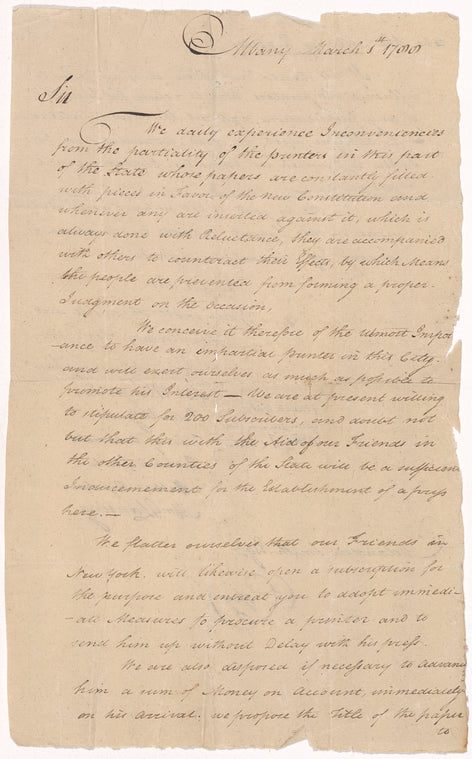 Albany March 1st 1788
Sir
We daily experience Inconveniencies
from the partiality of the printers in this part
of the State whose papers are constantly filled
with pieces in Favor of the new Constitution and
whenever any are inserted against it, which is
always done with Reluctance, they are accompanied
with others to counteract their Effects, by which Means
the people are prevented from forming a proper
Judgment on the occasion,
We conceive it therefore of the utmost Impor
ance to have an impartial printer in this City.
and will exert ourselves as much as possible to
promote his Interest — We are at present willing
to stipulate for 200 Subscribers, and doubt not
but that this with the Aid of our Friends in
the other Counties of the State will be a sufficient
Inducement for the Establishment of a press
here. —
We flatter ourselves that our Friends in
New York. will likewise open a subscription for
the purpose and entreat you to adopt immedi-
-ate Measures to procure a printer and to
send him up without Delay with his press.
We are also disposed if necessary to advance
him a sum of Money on Account, immediately
on his arrival. we propose the Title of the paper
to